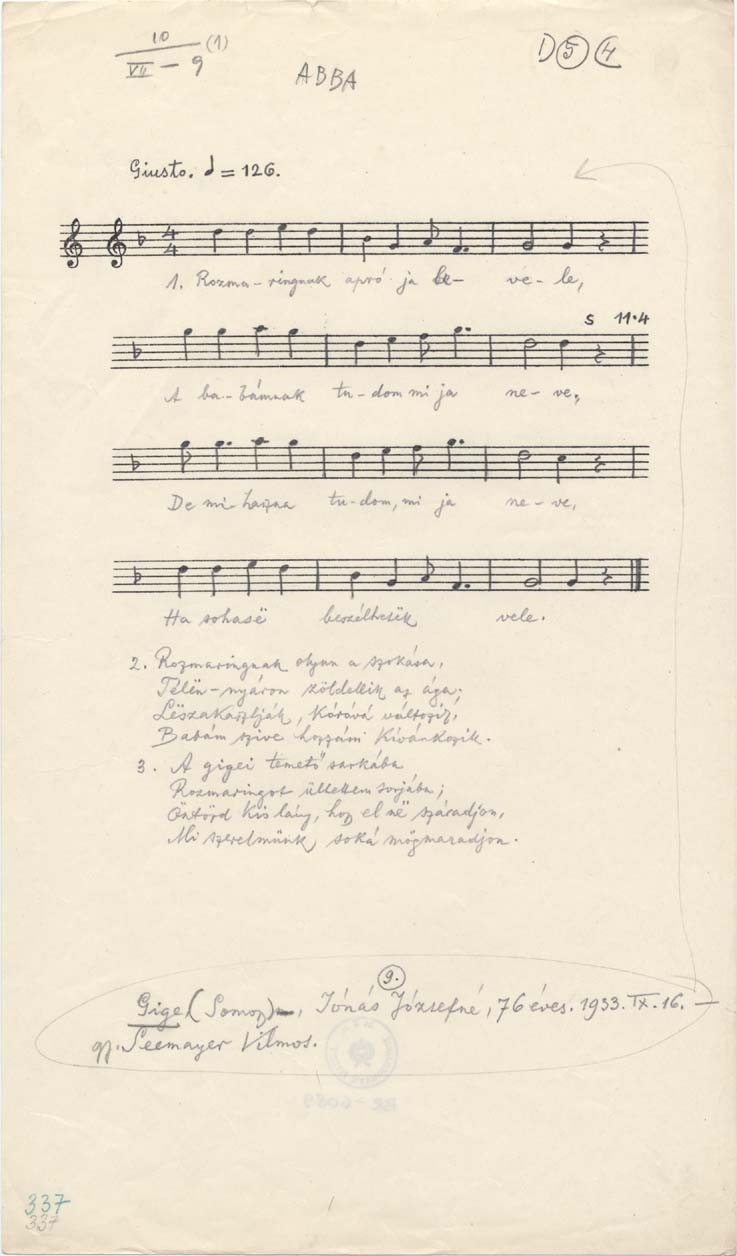 10 (1)
VII - 9
ABBA
D 5 4
Giusto. = 126.
4
4
1. Rozma-ringnak apró ja le- ve-le,
S 11.4
A ba-bámnak tu-dom mi ja ne-ve,
De mi-haszna tu-dom, mi ja ne-ve,
Ha sohasë beszélhetëk vele.
2. Rozmaringnak olyan a szokása,
Télën-nyáron zöldellik az ága;
Lëszakasztják, kóróvá változik,
Babám szive hozzám kivánkozik.
3. A gigei temető sarkába
Rozmaringot ültettem sorjába;
Öntözd kis lány, hogy el në száradjon,
Mi szerelmünk soká mögmaradjon.
9.
Gige (Somogy), Jónás Józsefné, 76 éves. 1933. IX. 16. —
gy. Seemayer Vilmos.
337
337